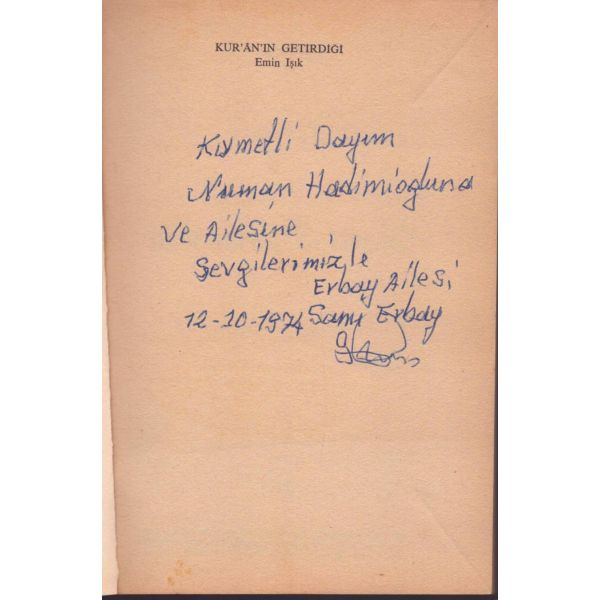 KUR'ÂN'IN GETIRDIGI
Emin Işık
Kıymetli Dayım
Numan Hadimioğluna
ve Ailesine
Sevgilerimizle
Erbay Ailesi
12-10-1974 Sami Erbay